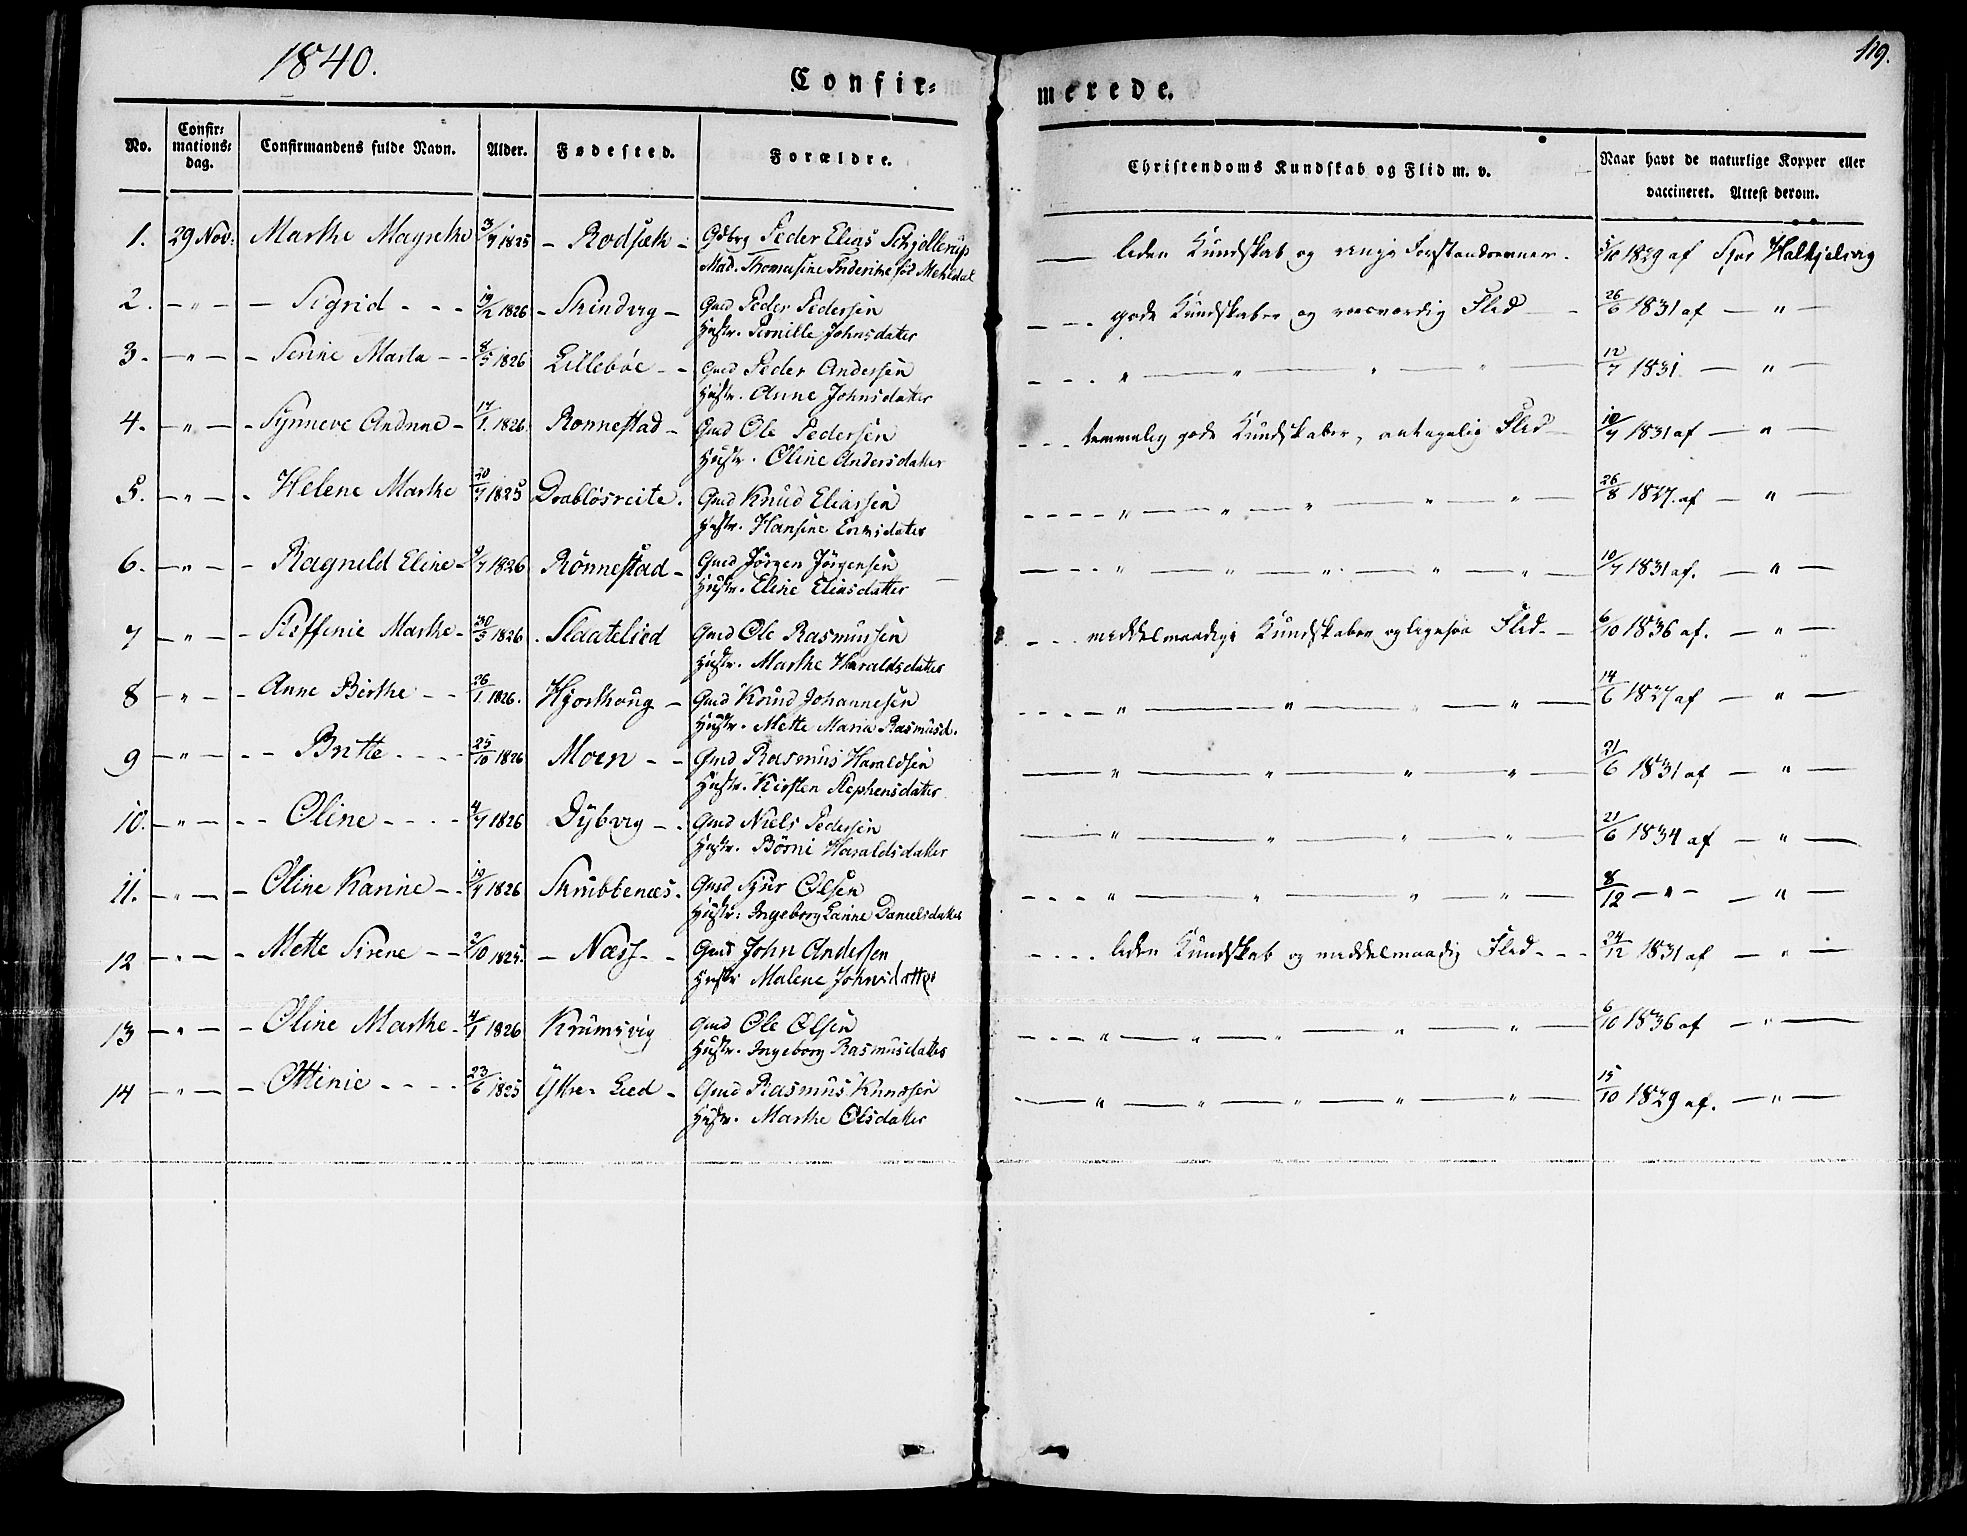 1840.
119.
Confir=
merede.
No.
Confir=
mations=
dag.
Confirmandens fulde Navn.
Alder.
Fødested.
Forældre.
Christendoms Kundskab og Flid m. v.
Naar havt de naturlige Kopper eller
vaccineret. Attest derom.
1. 29 Nov: Marthe Magrethe 3/7 1825 - Rodsæth - Gdbrg Peder Elias Schjøllerup liden Kundskab og ringe Forstandsevner. 5/10 1829 af Sjur Halkjelsvig
Mad. Thomasine Friderike fød Meldal
2. - " - - Sigrid - - - 19/2 1826 - Strindvig - Gmd Peder Pedersen - - - gode Kundskaber og roesværdig Flid - - 26/6 1831 af - " -
Hustr. Pernille Johnsdatter
3. - " - - Serine Marta - - 8/5 1826 Lillebøe - - Gmd Peder Andersen - - - " - " - " - " - 12/7 1831. - " -
Hustr. Anne Johnsdatter
4. - " - - Synneve Andrine - 17/1 1826. Ronnestad - Gmd Ole Pedersen - - - temmelig gode Kundskaber, antagelig Flid - 10/7 1831 af - " -
Hustr. Oline Andersdatter
5. - " - - Helene Marthe 20/7 1825 Drabløsreite. Gmd Knud Eliassen - - - - " - " - " - " - " - 26/8 1827. af - " -
Hustr. Hansine Ennisdatter
6. - " - - Ragnild Eline - 9/7 1826 Rønnestad - Gmd Jørgen Jørgensen - - - " - " - " - " - " - 10/7 1831 af. - " -
Hustr. Eline Eliasdatter
7 - " - - Steffenie Marthe - 30/3 1826 . Slaatelied Gmd Ole Rasmussen - - - middelmaadige Kundskaber og ligesaa Flid - - 6/10 1836 af. - " -
Hustr. Marthe Haraldsdatter
8 - " - - Anne Birthe - - 26/1 1826. Hjorthoug - Gmd Knud Johannesen - - - - " - " - " - " - 14/6 1827 af - " -
Hustr. Mette Maria Rasmusd.
9 - " - - - Britte - - - - 25/10 1826 Moen - - Gmd Rasmus Haraldsen - " - " - " - " - 21/6 1831 af - " -
Hustr. Kirsten Stephensdatter
10. - " - - - Oline - - - - 4/7 1826 Dÿbvig - . Gmd Niels Pedersen - " - " - " - " - 21/6 1834 af - " -
Hustr. Børni Haraldsdatter
11. - " - - Oline Karine - - 19/7 1826 Skrubbenæs. Gmd Sjur Olsen - - - " - " - " - " - 8/12 - " - - " -
Hustr: Ingeborg Lanine Danielsdatter
12 - " - - Mette Sirene - - 2/10 1825. - Næss - - Gmd John Andersen - - - - liden Kundskab og middelmaadig Flid - - - 24/12 1831 af - " -
Hustr Malene Johnsdatter
13 - " - - Oline Marthe - 4/1 1826 Krumsvig Gmd Ole Olsen - - - " - " - " - " - " - 6/10 1836 af - " -
Hustr. Ingeborg Rasmusdatter
14 - " - - Ottinie - - - - 23/6 1825 Ÿttre Lied - Gmd Rasmus Knudsen - " - " - " - " - " - 15/10 1829 af. - " -
Hustr. Marthe Olsdatter